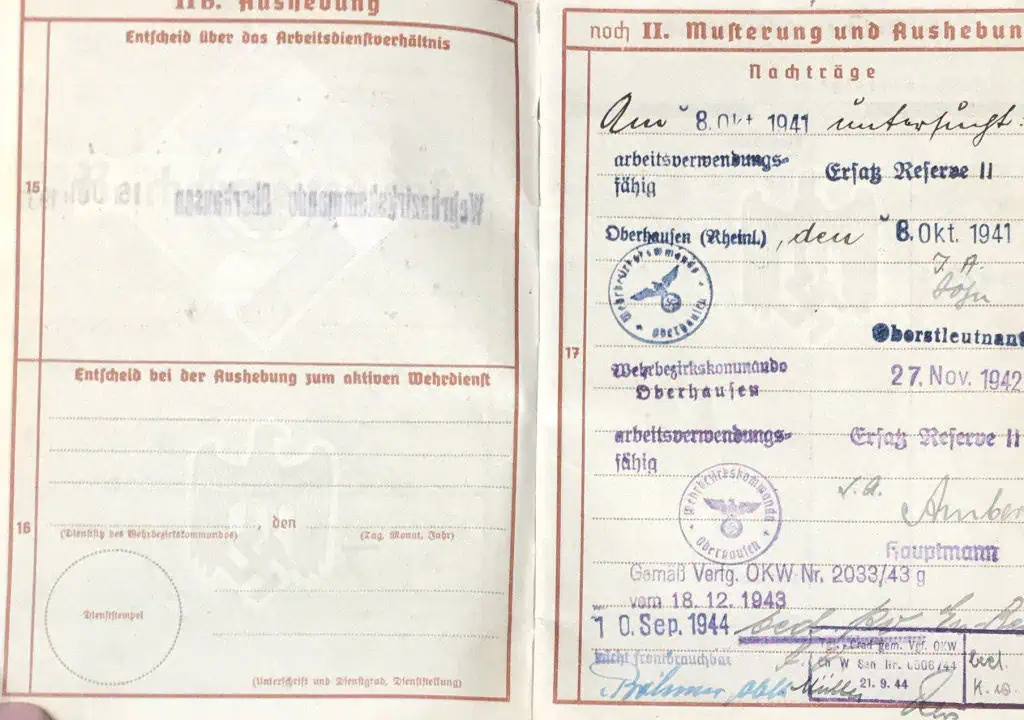 IIB. Aushebung
Entscheid über das Arbeitsdienstverhältnis
15
Wehrbezirkskommando Oberhausen
Entscheid bei der Aushebung zum aktiven Wehrdienst
16
, den
(Dienstsitz des Wehrbezirkskommandos)
(Tag, Monat, Jahr)
Dienststempel
(Unterschrift und Dienstgrad, Dienststellung)
noch II. Musterung und Aushebun
Nachträge
17
Am 8. Okt 1941 untersucht:
arbeitsverwendungs-
fähig
Ersatz Reserve II
Oberhausen (Rheinl.), den 8. Okt. 1941
Wehrbezirkskommando
Oberhausen
I. A.
Oberstleutnant
Wehrbezirkskommando
Oberhausen
27. Nov. 1942
arbeitsverwendungs-
fähig
Ersatz Reserve II
I. A.
Wehrbezirkskommando
Oberhausen
Hauptmann
Gemäß Verfg. OKW Nr. 2033/43 g
vom 18. 12. 1943
10. Sep. 1944
nicht frontbrauchbar
gem. Vfg. OKW
Ch W San Nr.
21. 9. 44
Müller